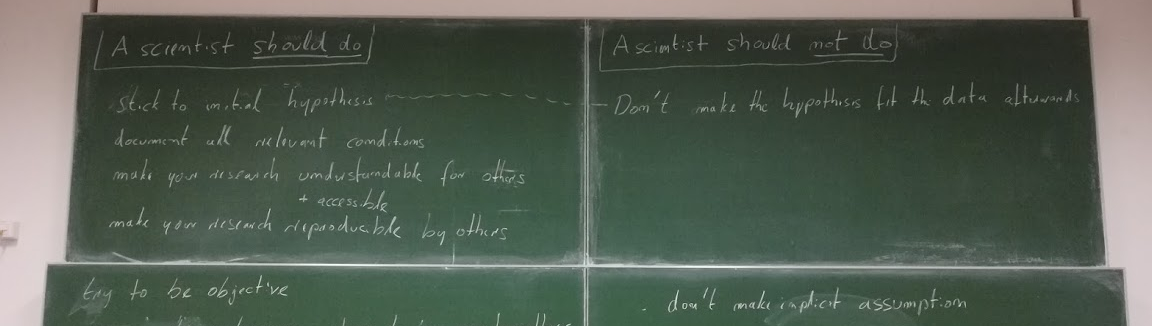 A scientist should do
stick to initial hypothesis
document all relevant conditions
make your research understandable for others
+ accessible
make your research reproducable by others
try to be objective
A scientist should not do
Don't make the hypothesis fit the data afterwards
- don't make implicit assumption